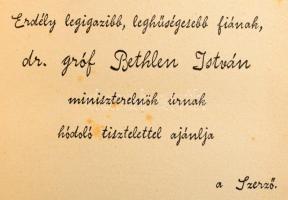 Erdély legigazibb, leghűségesebb fiának,
dr. gróf Bethlen István
miniszterelnök úrnak
hódoló tisztelettel ajánlja
a Szerző.